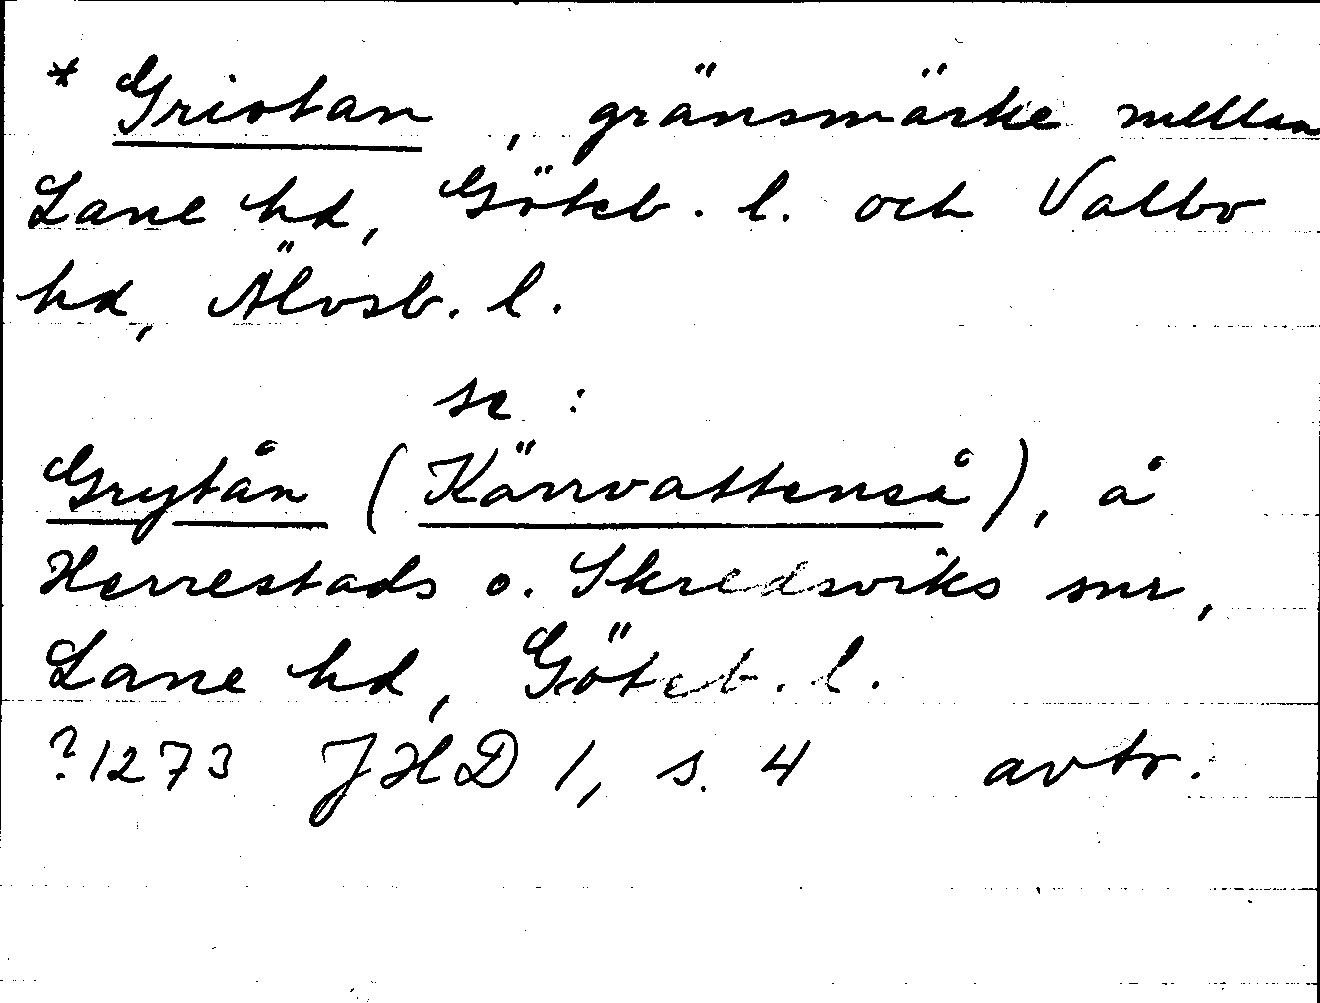 * Griotan, gränsmärke mellan
Lane hd, Göteb. l. och Valbo
hd, Älvsb. l.
se :
Grytån (Kärrvattenså), å
Herrestads o. Skredsviks snr,
Lane hd, Göteb. l.
?1273 JHD 1, s. 4 avtr.